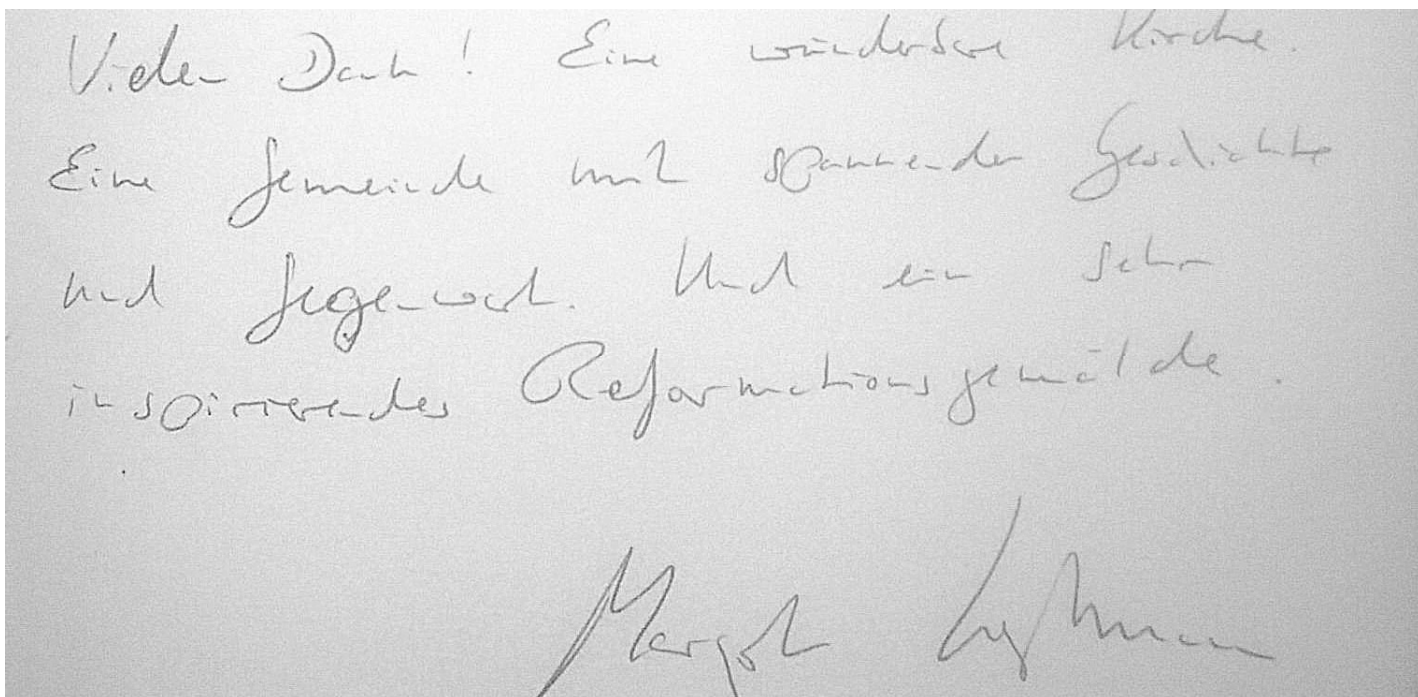 Vielen Dank! Eine wunderbare Kirche.
Eine Gemeinde mit spannender Geschichte
und Gegenwart. Und ein sehr
inspirierendes Reformationsgemälde.
Margot